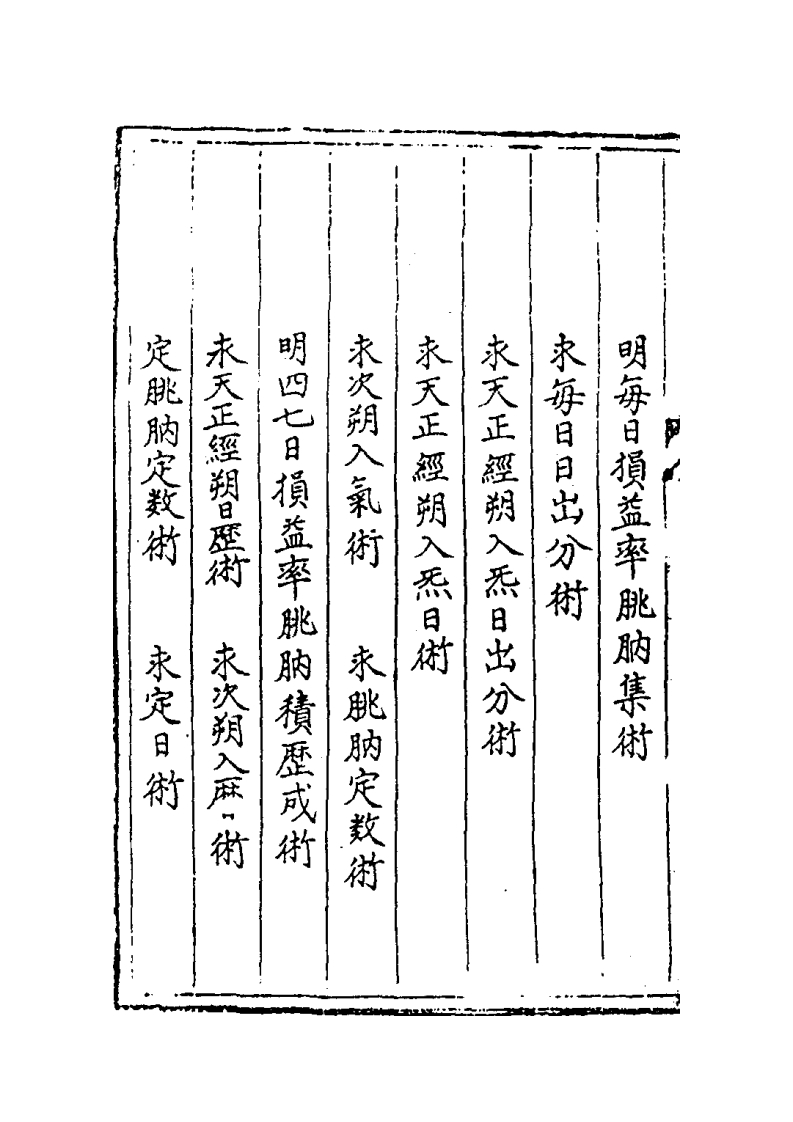 明每日損益率朓朒集術
求每日日出分術
求天正經朔入炁日出分術
求天正經朔入炁日術
求次朔入氣術　求朓朒定数術
明四七日損益率朓朒積歷成術
求天正經朔日歷術　求次朔入厤術
定朓朒定数術　求定日術